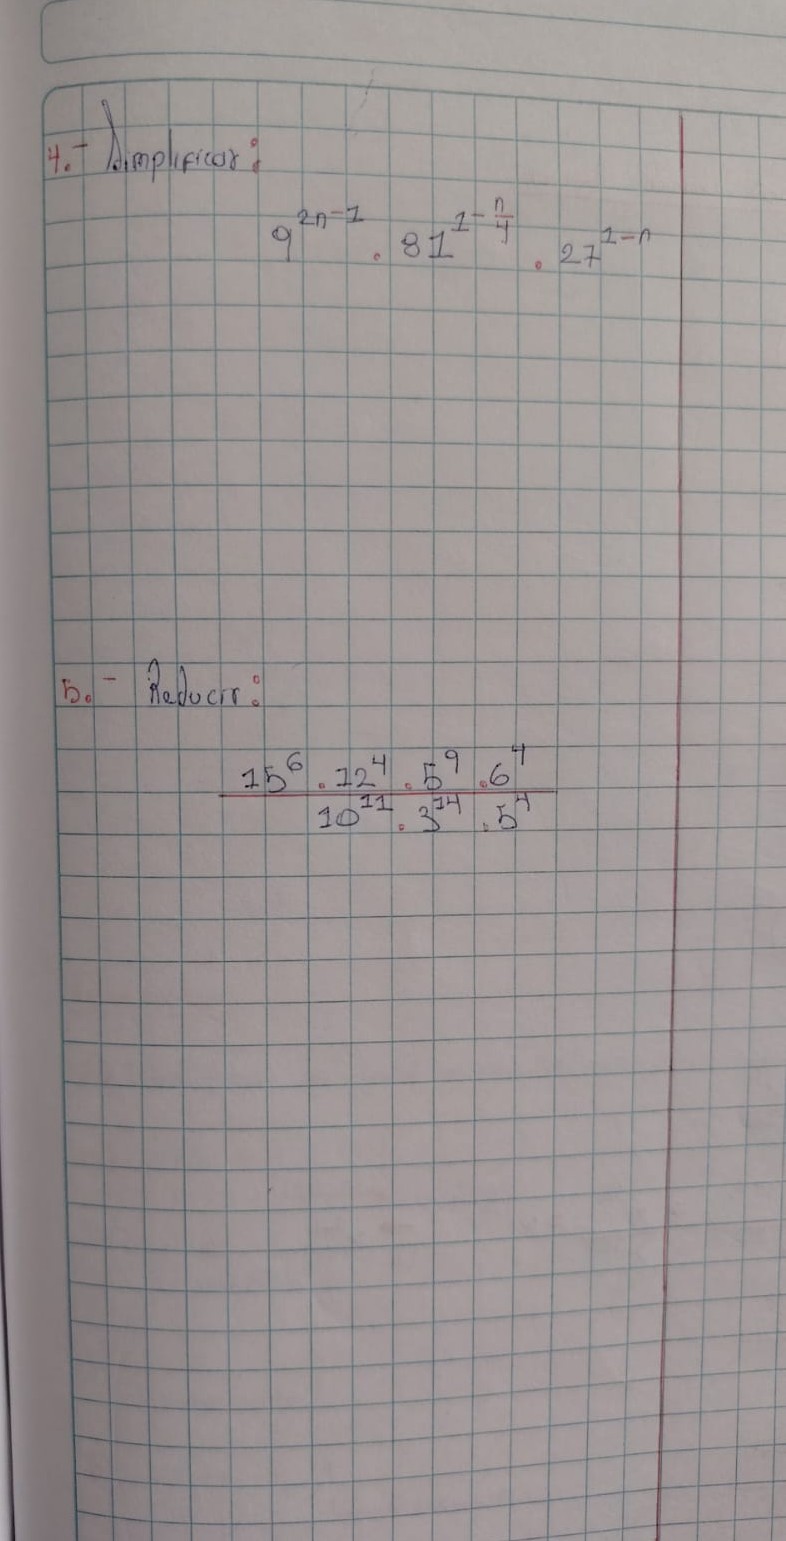 4.- Simplificar:
9^{2n-1} . 81^{1-\frac{n}{4}} . 27^{1-n}
5.- Reducir:
15^6 . 12^4 . 5^9 . 6^4
10^{11} . 3^{14} . 5^4